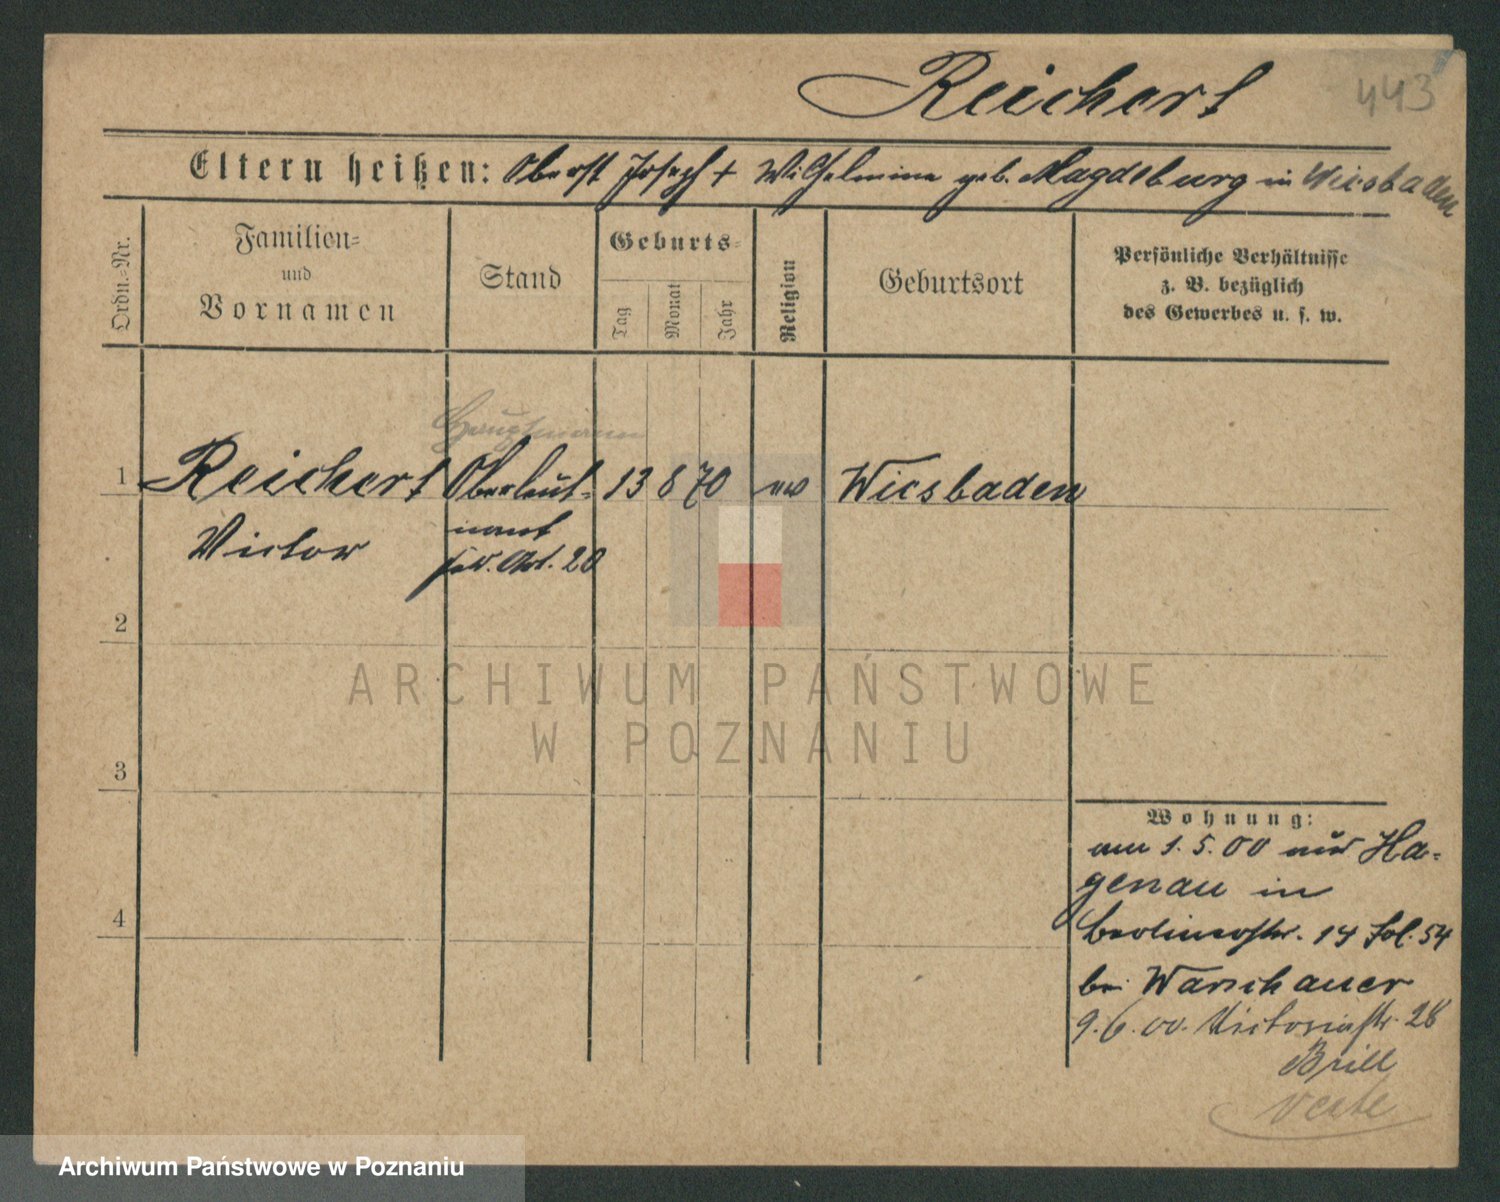 443
Reichert
Eltern heißen: Oberst Joseph + Wilhelmine geb. Magdeburg in Wiesbaden
Ordn.-Nr.
Familien-
und
Vornamen
Stand
Geburts-
Tag
Monat
Jahr
Religion
Geburtsort
Persönliche Verhältnisse
z. B. bezüglich
des Gewerbes u. s. w.
Hauptmann
1 Reichert Oberleut- 13 8 70 ev Wiesbaden
Victor nant
Art. 20
2
3
4
Wohnung:
am 1. 5. 00 aus Ha-
genau in
Berlinerstr. 14 Fol. 54
bei Warschauer
9. 6. 00. Victoriastr. 28
Brill
Verte
ARCHIWUM PAŃSTWOWE
W POZNANIU
Archiwum Państwowe w Poznaniu